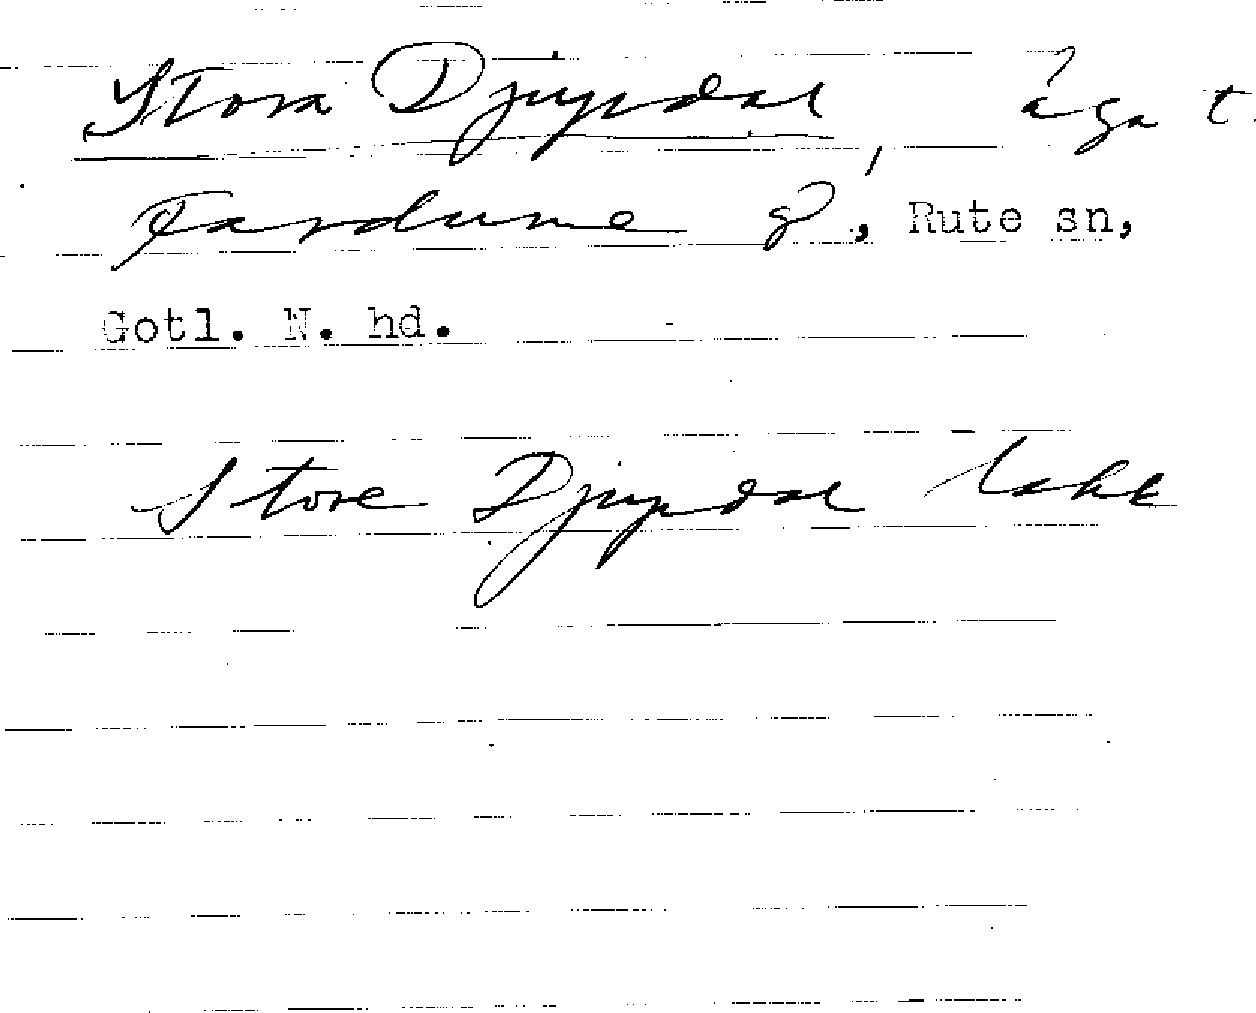 Stora Djupdal, äga t.
Fardume g, Rute sn,
Gotl. N. hd.
Store Djupdal